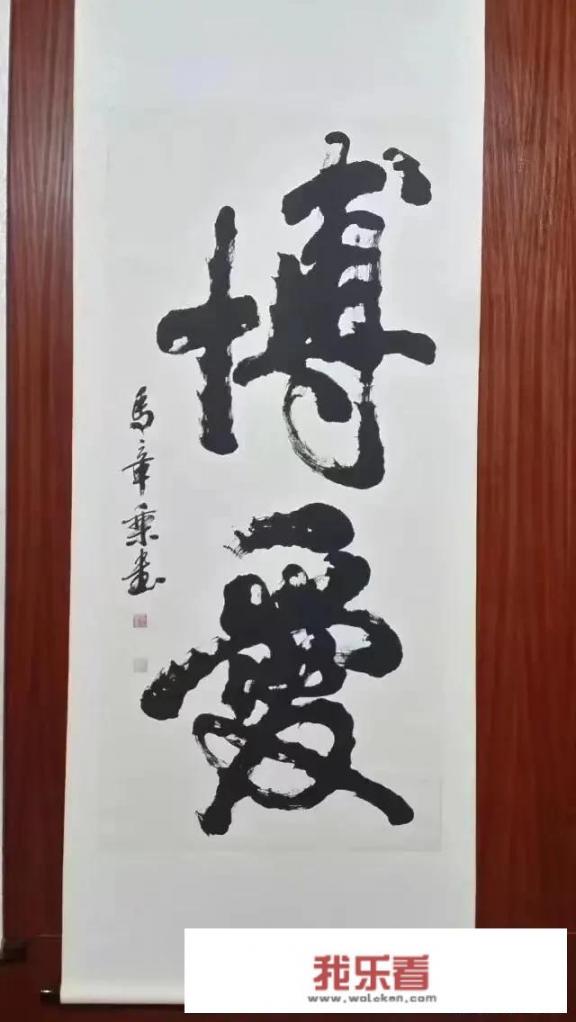 博爱
马章乘书
我乐看
www.woleken.com